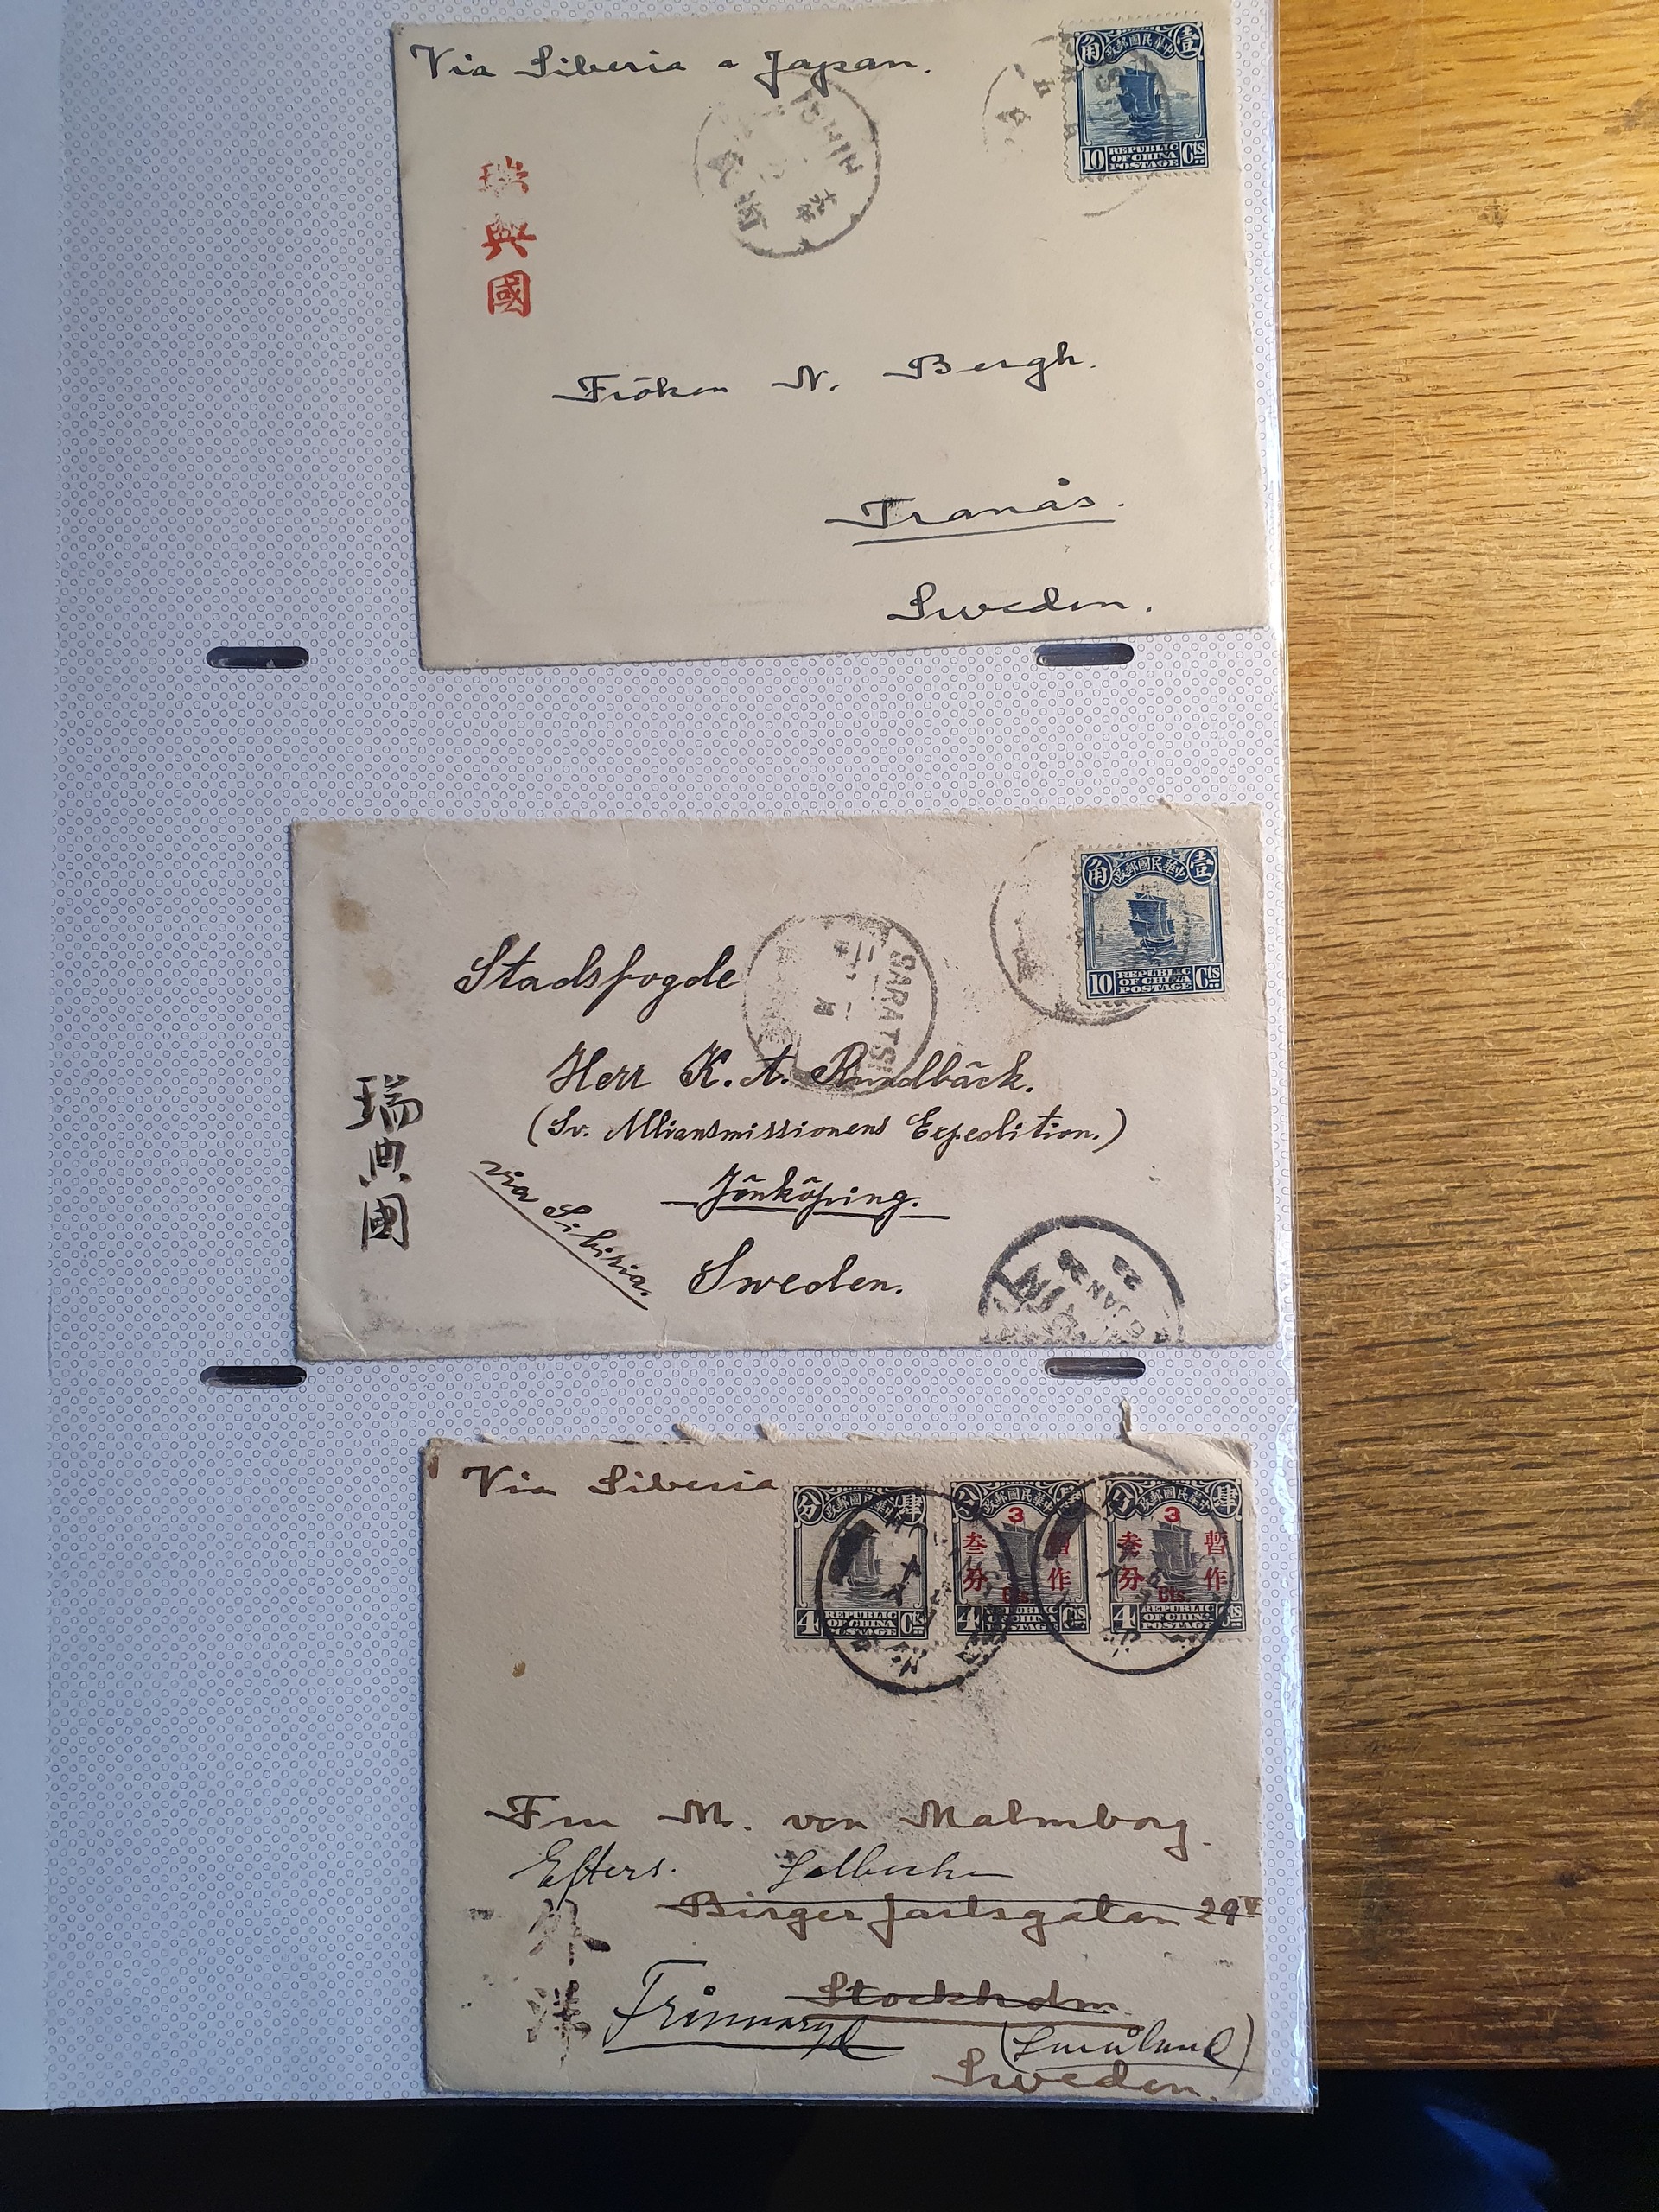 Via Siberia a Japan.
角 中華民國郵政 壹
10 REPUBLIC OF CHINA POSTAGE Cts
瑞
典
國
Fröken N. Bergh.
Tranås.
Sweden.
角 中華民國郵政 壹
10 REPUBLIC OF CHINA POSTAGE Cts
SARATSI
Stadsfogde
Herr K. A. Rundbäck.
(Sv. Alliansmissionens Expedition.)
Jönköping.
via Sibiria.
Sweden.
瑞
典
國
22
JAN
Via Siberia
分 中華民國郵政 肆
4 REPUBLIC OF CHINA POSTAGE Cts
3
叁分 暫作
Cts
4 REPUBLIC OF CHINA POSTAGE Cts
分 中華民國郵政 肆
3
叁分 暫作
Cts.
4 REPUBLIC OF CHINA POSTAGE Cts
Fru M. von Malmborg.
Efters.
Birger Jarlsgatan 29 IV
外
洋
Stockholm
Frinnaryd
(Småland)
Sweden.